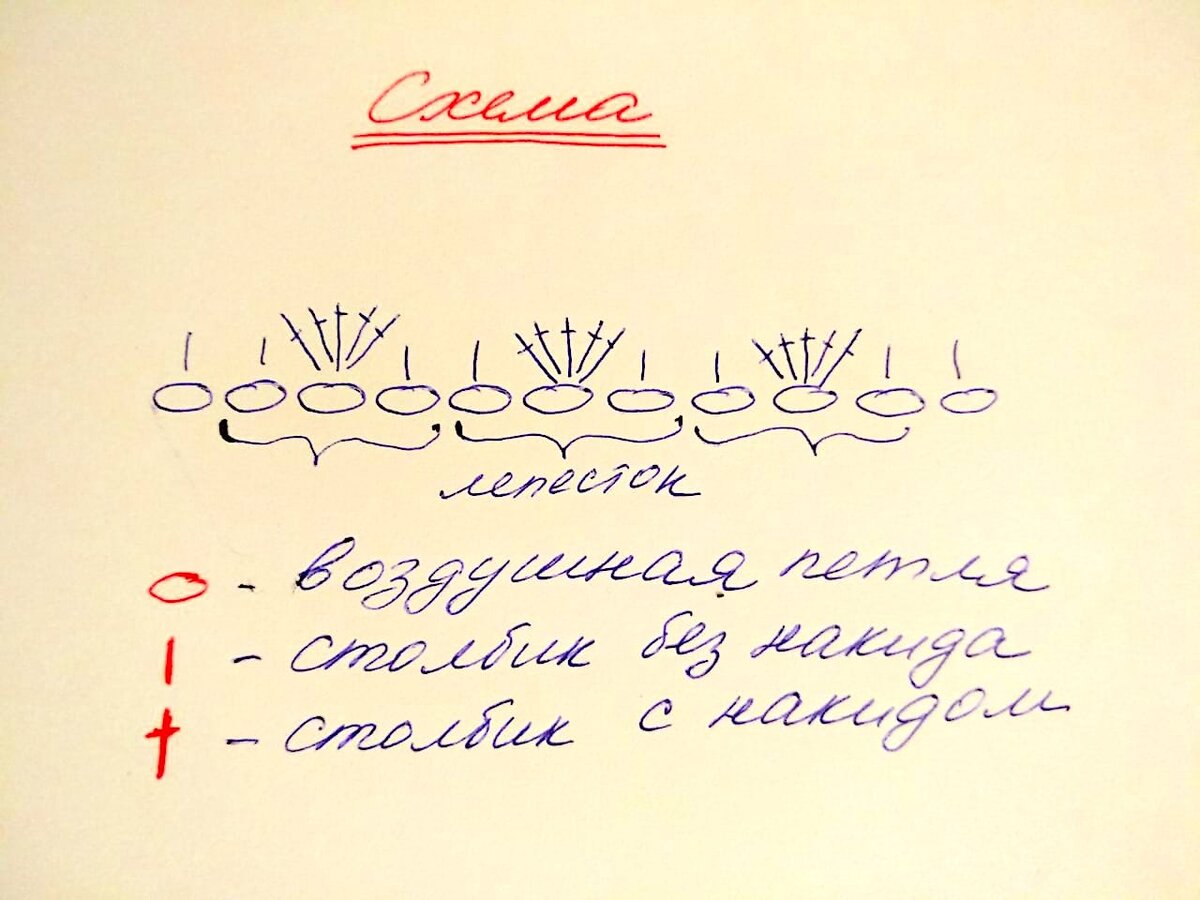 Схема
лепесток
- воздушная петля
- столбик без накида
- столбик с накидом